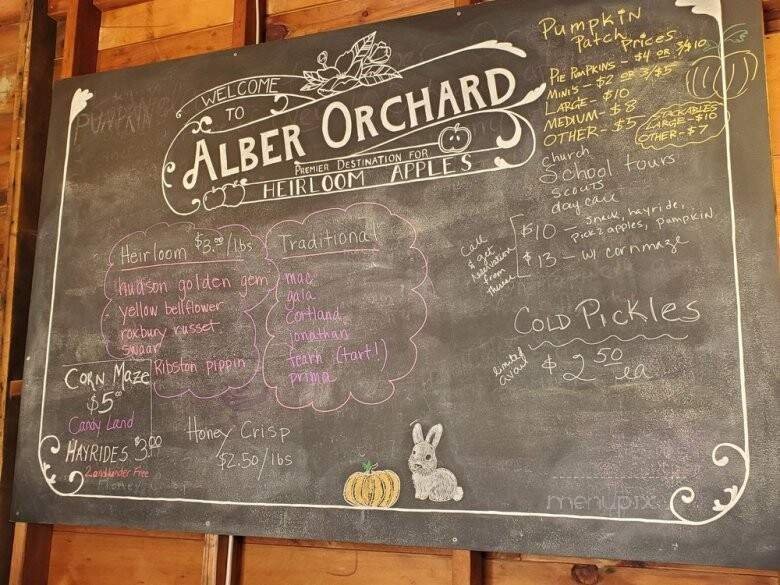 WELCOME
TO
ALBER ORCHARD
PREMIER DESTINATION FOR
HEIRLOOM APPLES
Pumpkin
Patch Prices
PIE PUMPKINS - $4 OR 3/$10
MINI'S - $2 OR 3/$5
LARGE - $10
MEDIUM - $8
OTHER - $5
STACKABLES
LARGE - $10
OTHER - $7
church
School tours
scouts
day care
Call
& get
reservation
from
$10 - snack, hayride,
pick 2 apples, pumpkin
$13 - w/ cornmaze
COLD PICKLES
limited
avail
$2.50
ea
Heirloom $3.00/lbs
hudson golden gem
yellow bellflower
roxbury russet
swaar
Ribston pippin
Traditional
mac
gala
cortland
jonathan
fearn (tart!)
prima
CORN MAZE
$5
Candy Land
HAYRIDES $3.00
2 and under Free
Honey Crisp
$2.50/lbs
PUMPKIN
Honey
menupix